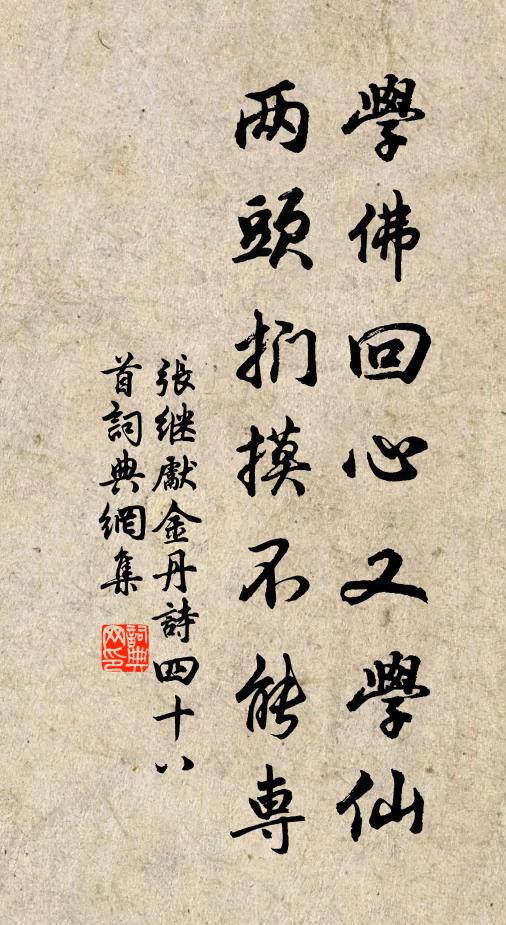 學佛回心又學仙
两頭捫摸不能専
張继獻金丹詩四十八
首詞典網集
詞典网印